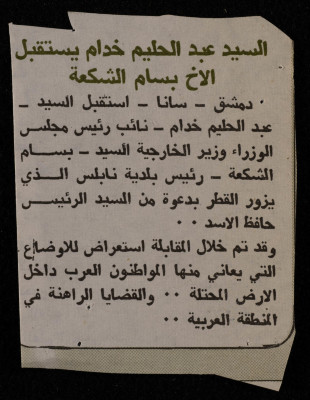 السيد عبد الحليم خدام يستقبل
الاخ بسام الشكعة
دمشق - سانا - استقبل السيد -
عبد الحليم خدام - نائب رئيس مجلس
الوزراء وزير الخارجية السيد - بسام
الشكعة - رئيس بلدية نابلس الذي
يزور القطر بدعوة من السيد الرئيس
حافظ الاسد ٠٠
وقد تم خلال المقابلة استعراض للاوضاع
التي يعاني منها المواطنون العرب داخل
الارض المحتلة ٠٠ والقضايا الراهنة في
المنطقة العربية ٠٠